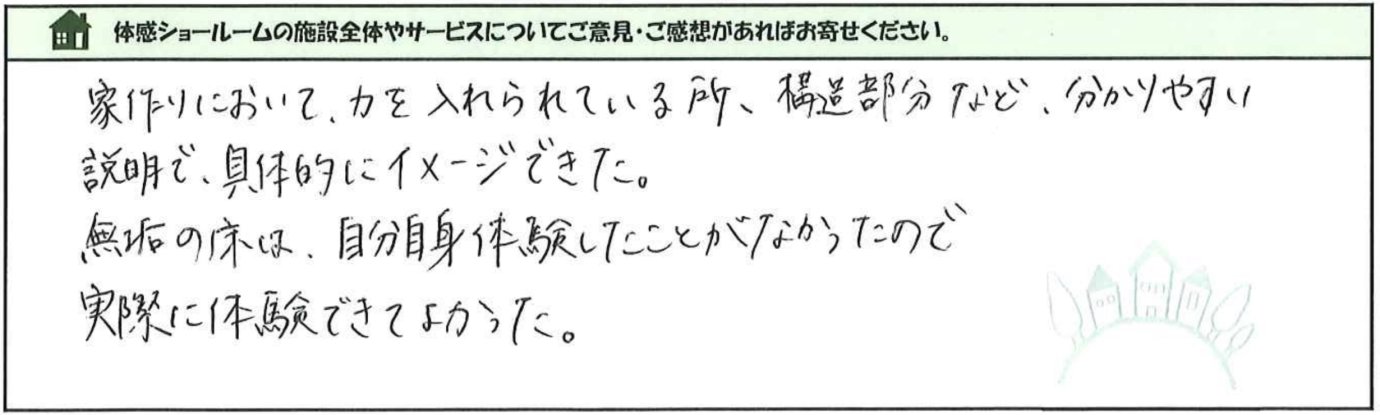 体感ショールームの施設全体やサービスについてご意見・ご感想があればお寄せください。
家作りにおいて、力を入れられている所、構造部分など、分かりやすい
説明で、具体的にイメージできた。
無垢の床は、自分自身体験したことがなかったので
実際に体験できてよかった。